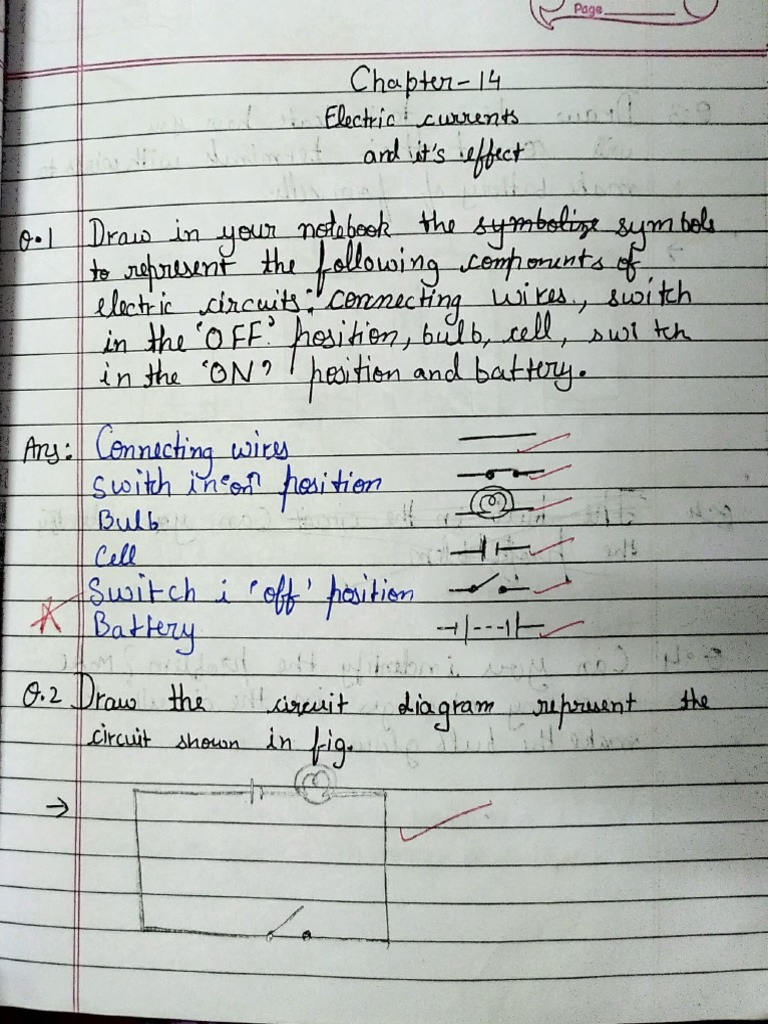 Page
Chapter-14
Electric currents
and it's effect
Q.1 Draw in your notebook the symbolize symbols
to represent the following components of
electric circuits: connecting wires, switch
in the 'OFF' position, bulb, cell, switch
in the 'ON' position and battery.
Ans: Connecting wires
Switch in 'on' position
Bulb
Cell
Switch i 'off' position
Battery
Q.2 Draw the circuit diagram represent the
circuit shown in fig.